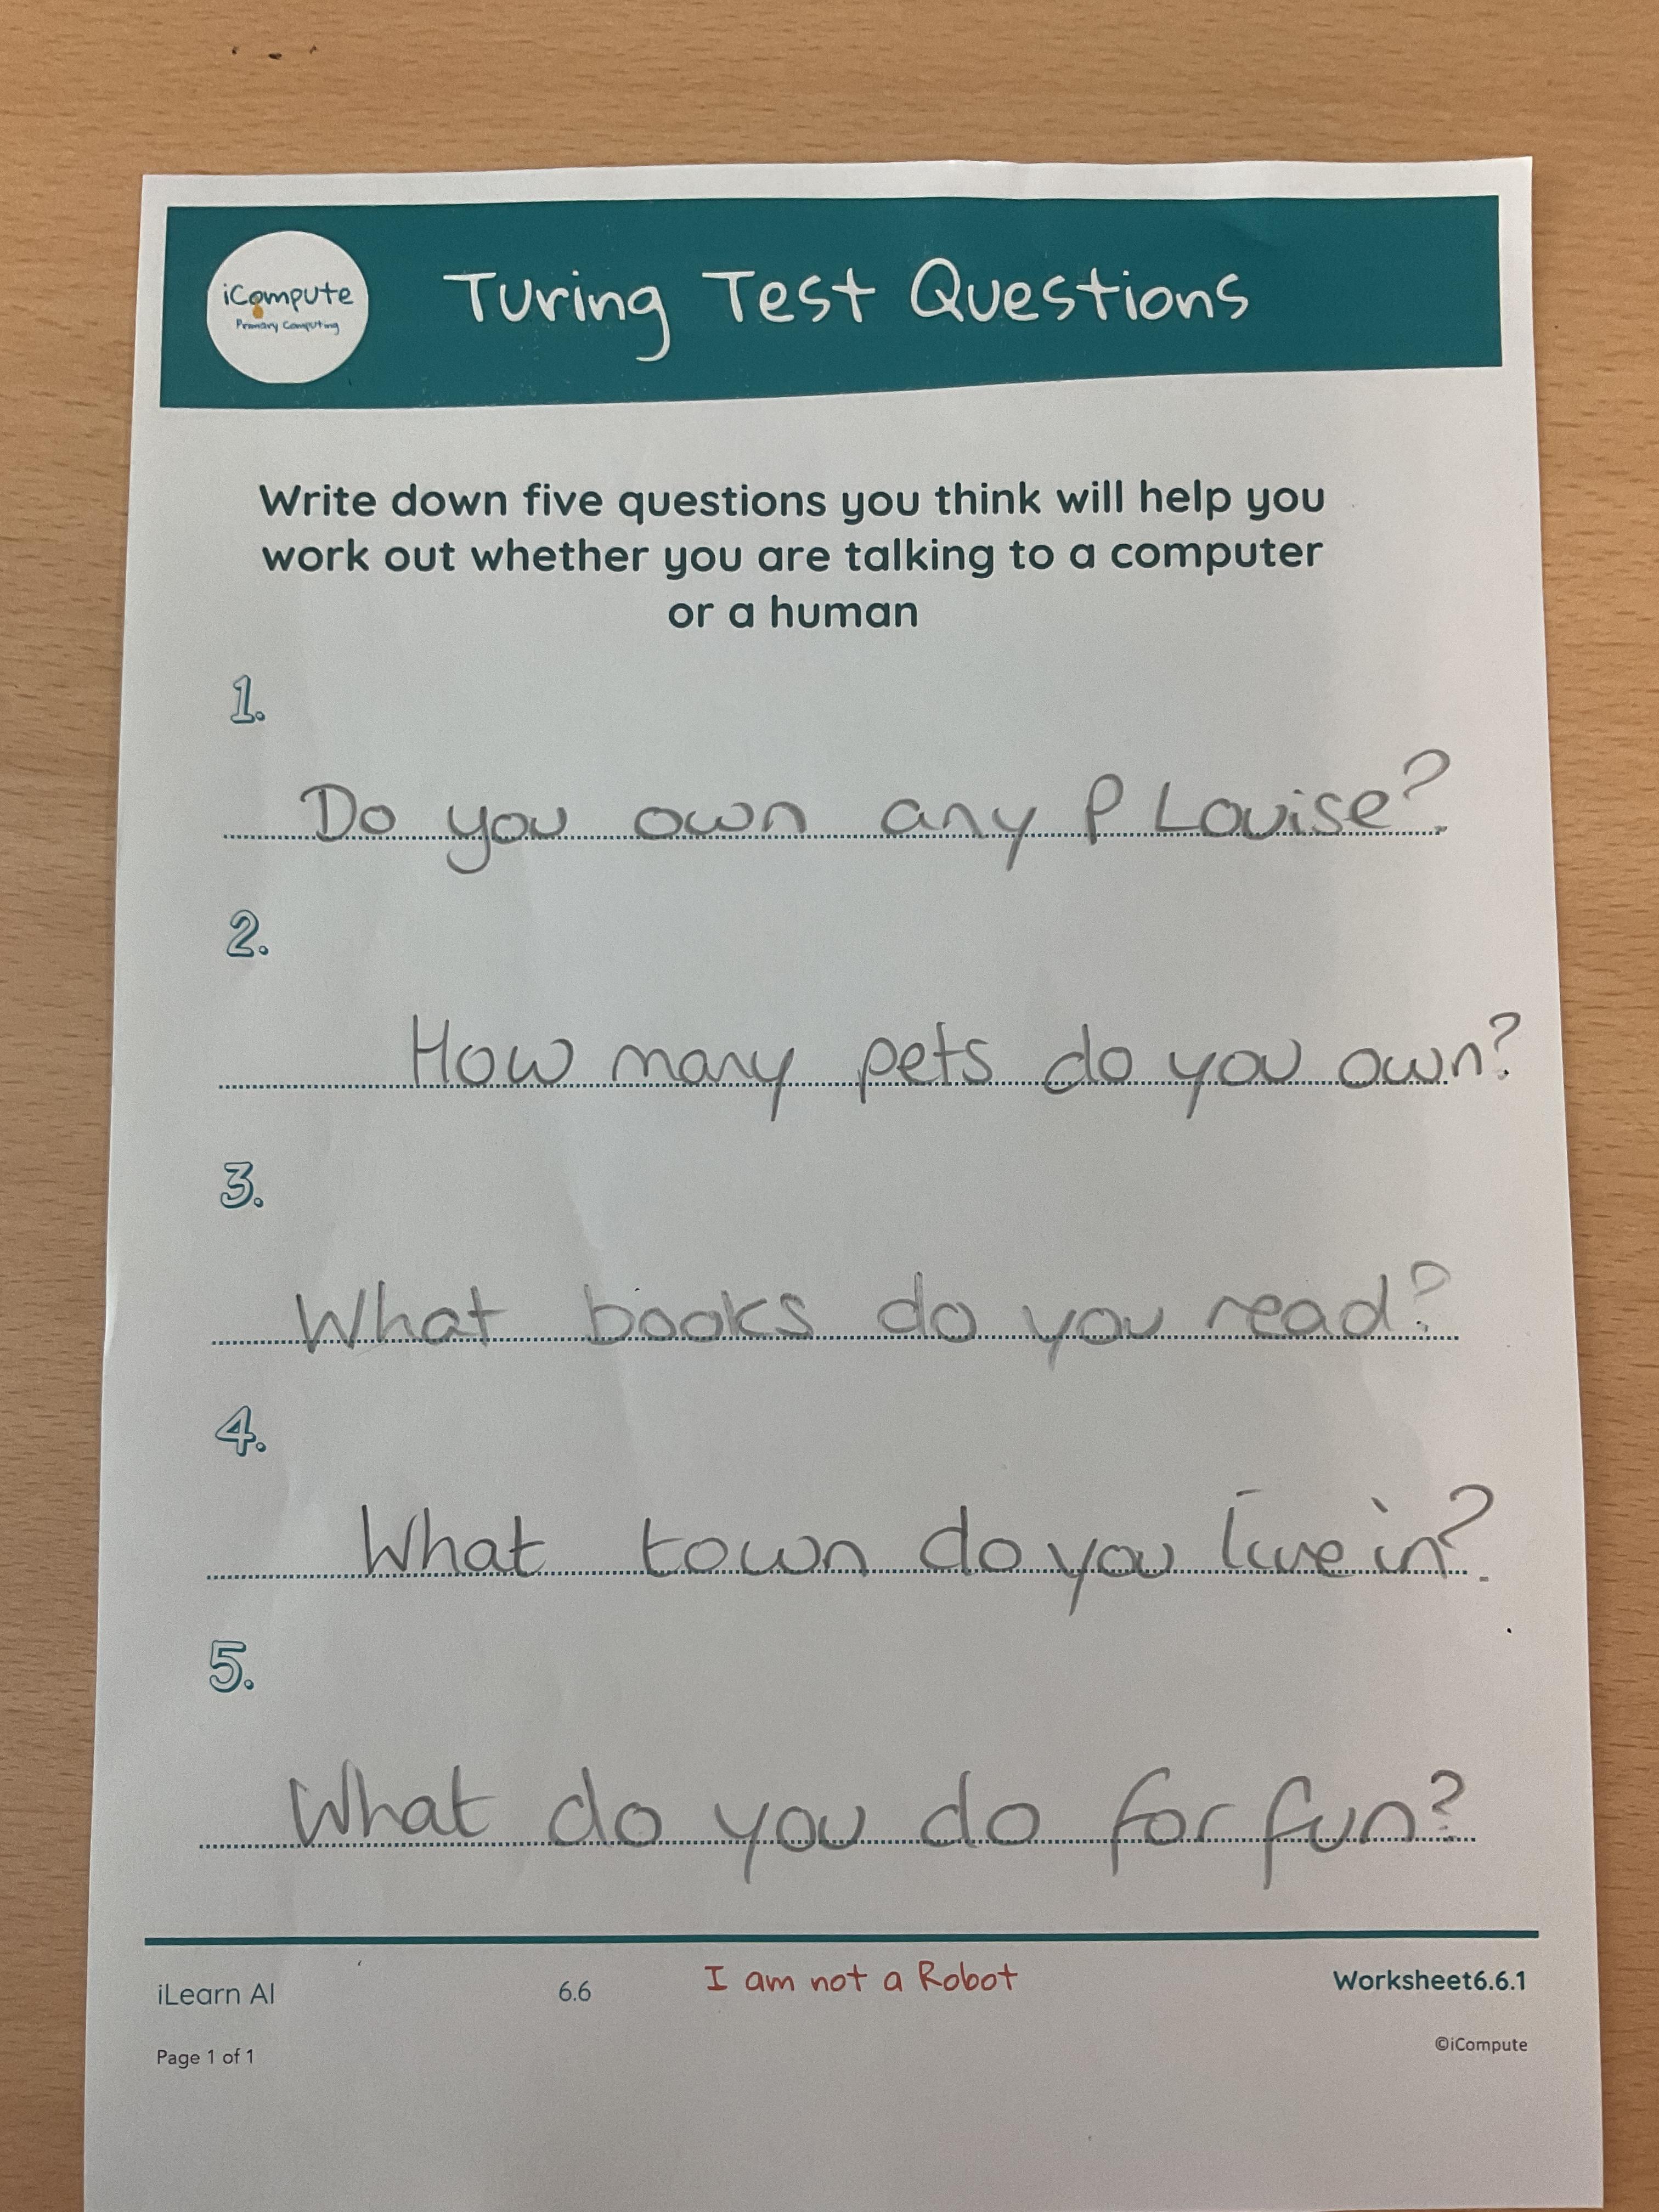 iCompute
Primary Computing
Turing Test Questions
Write down five questions you think will help you
work out whether you are talking to a computer
or a human
1.
Do you own any P Louise?
2.
How many pets do you own?
3.
What books do you read?
4.
What town do you live in?
5.
What do you do for fun?
iLearn AI 6.6 I am not a Robot Worksheet6.6.1
Page 1 of 1 ©iCompute